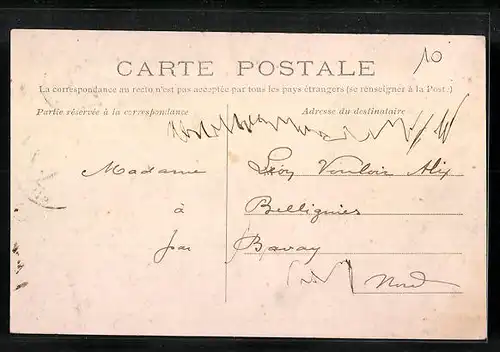 10
CARTE POSTALE
La correspondance au recto n'est pas acceptée par tous les pays étrangers (se renseigner à la Poste)
Partie réservée à la correspondance Adresse du destinataire
Madame Léon Vouloir Alix
à Bellignies
par Bavay
Nord